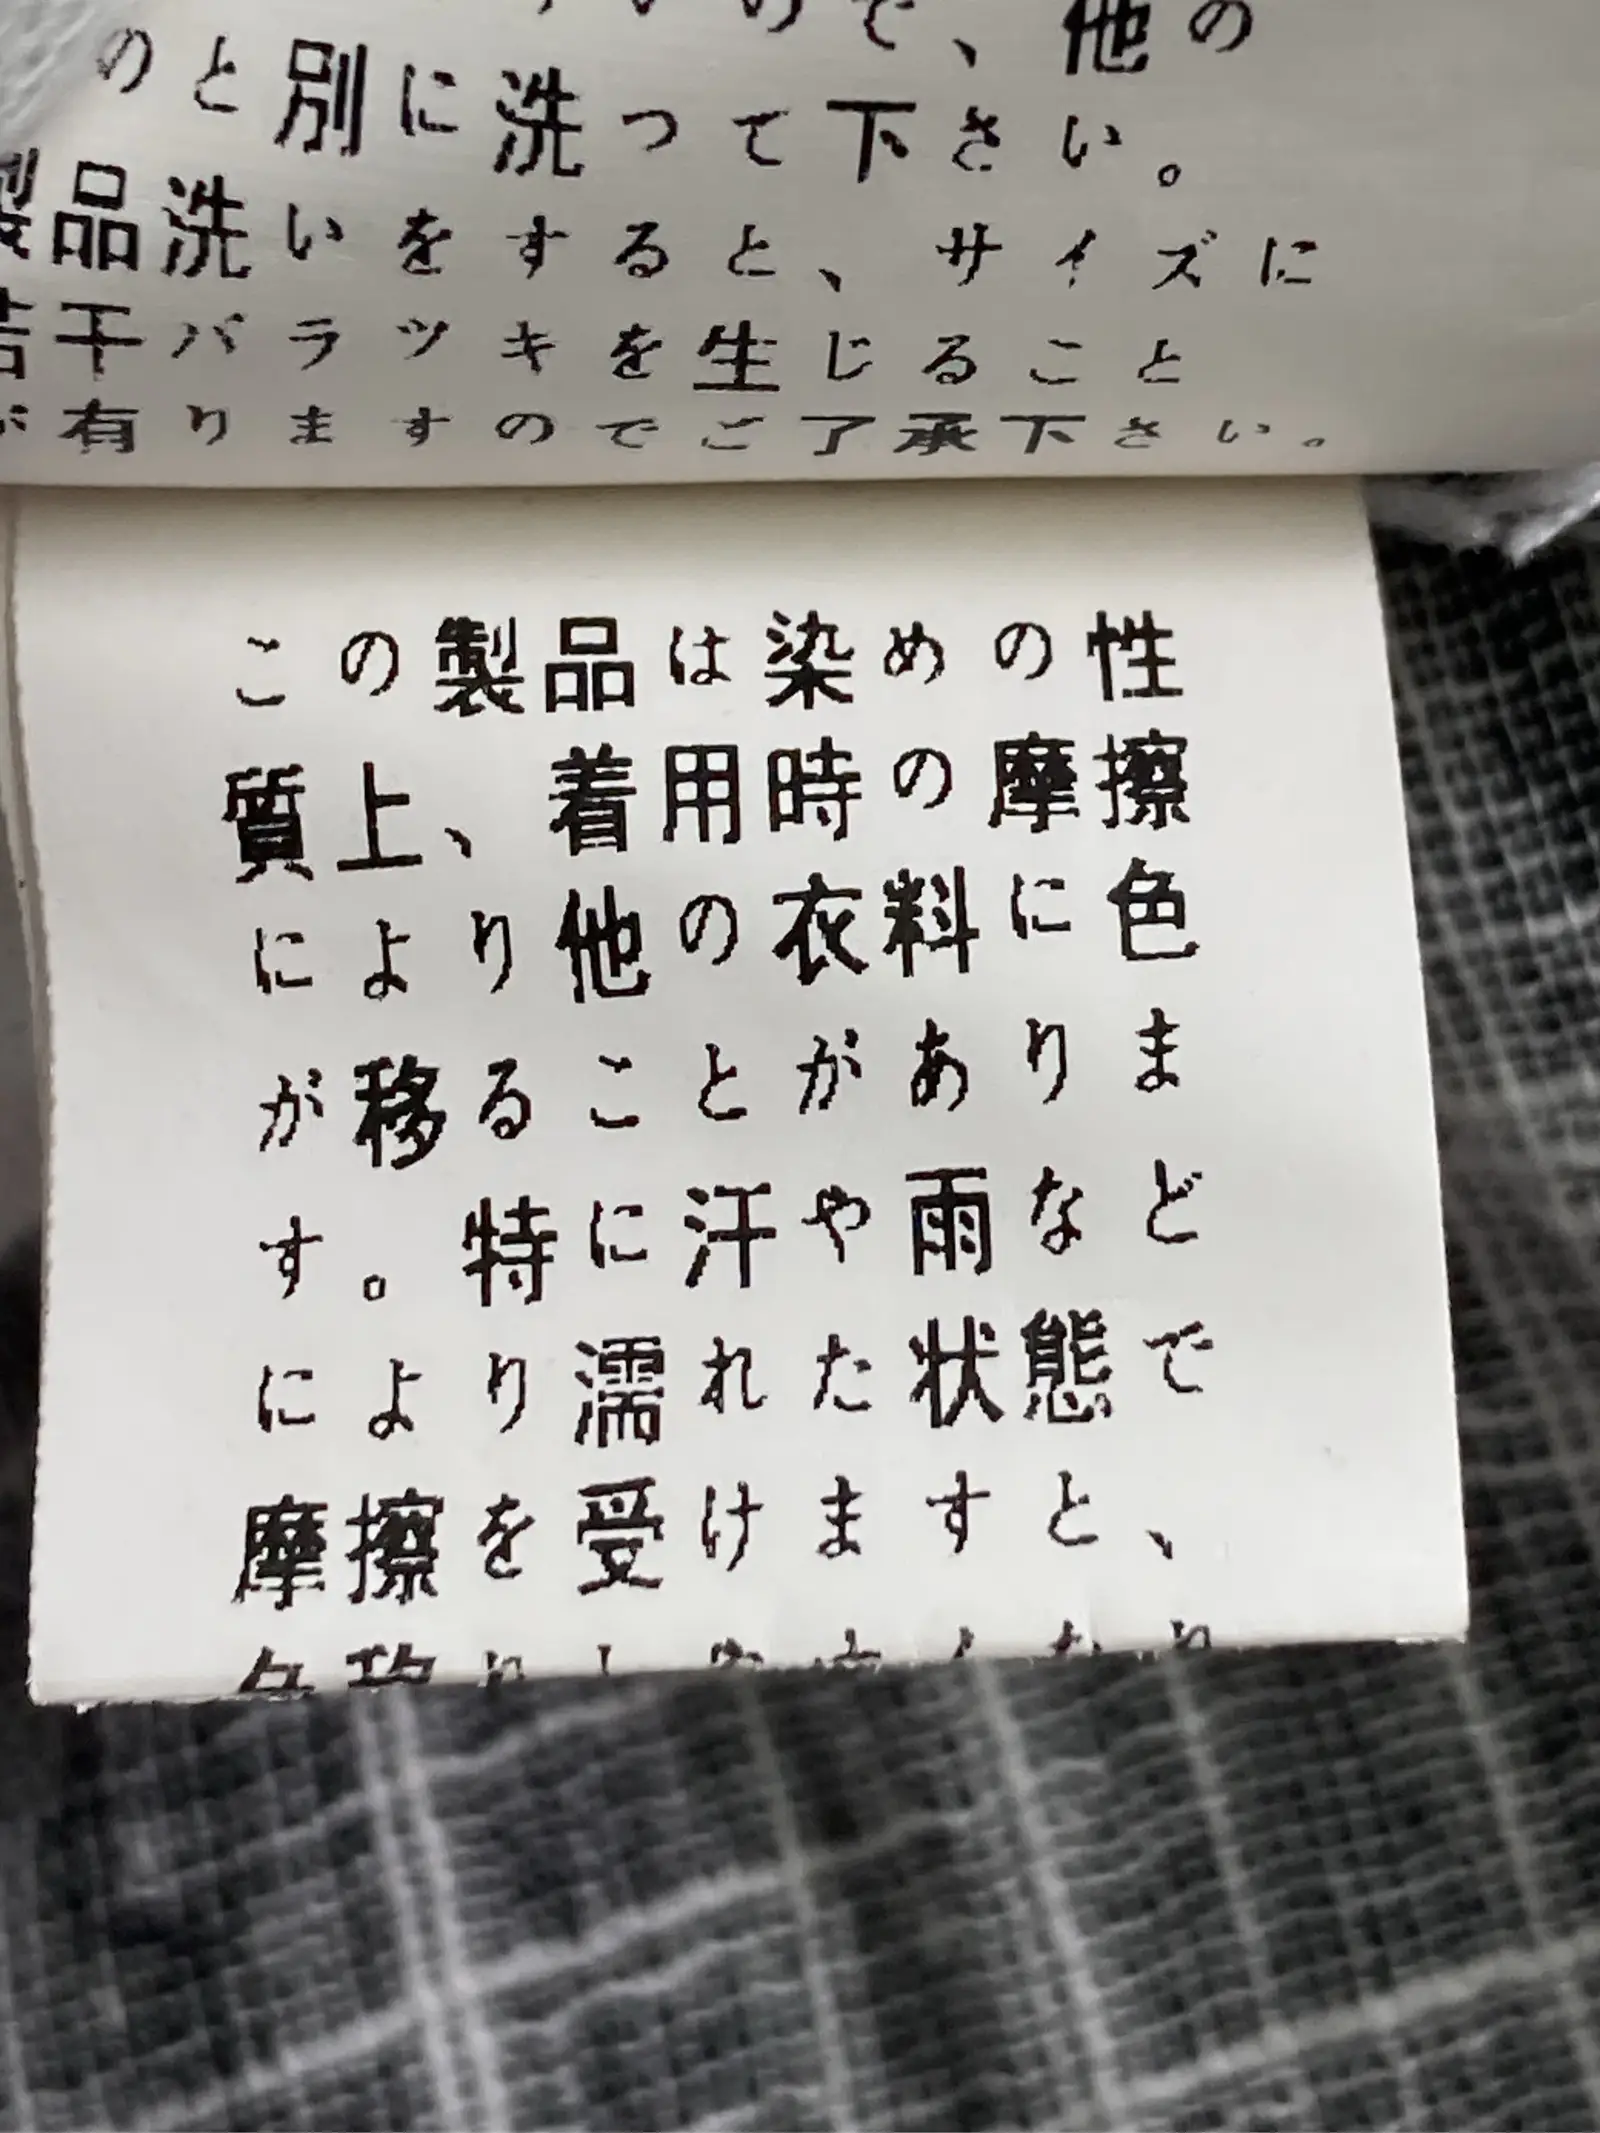 ので、他の
のと別に洗って下さい。
製品洗いをすると、サイズに
若干バラツキを生じること
が有りますのでご了承下さい。
この製品は染めの性
質上、着用時の摩擦
により他の衣料に色
が移ることがありま
す。特に汗や雨など
により濡れた状態で
摩擦を受けますと、